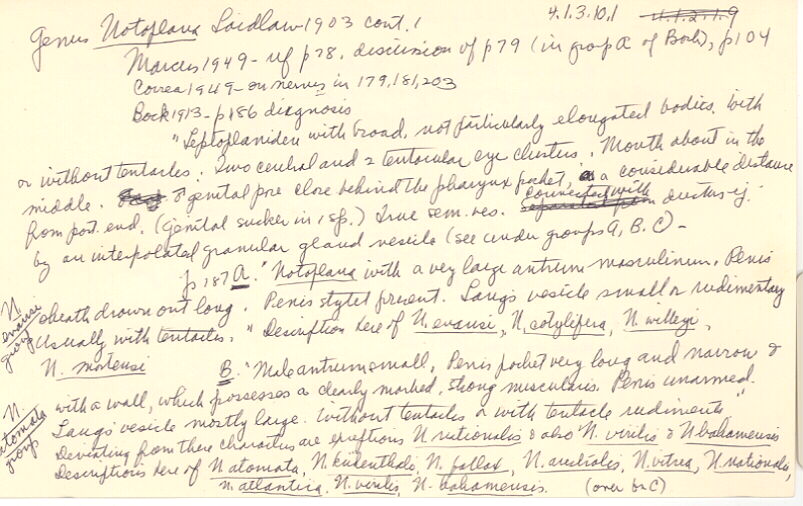 4.1.3.10.1 4.1.2.1.9
Genus Notoplana Laidlaw 1903 cont.
Marcus 1949 - ref p78, discussion of p79 (in group A of Bock), p104
Correa 1949 - on nerves in 179, 181, 203
Bock 1913 - p186 diagnosis
"Leptoplaniden with broad, not particularly elongated bodies. With
or without tentacles. Two central and 2 tentacular eye clusters. Mouth about in the
middle. ♂ genital pore close behind the pharynx pocket, a considerable distance
from post. end. (Genital sucker in 1 sp.) True sem. ves. connected with ductus ej.
by an interpolated granular gland vesicle (see under groups A, B, C) -
p 187 A. "Notoplana with a very large antrum masculinum. Penis
N. evansi group
sheath drawn out long. Penis stylet present. Lang's vesicle small or rudimentary
Usually with tentacles." Description here of N. evansi, N. cotylifera, N. willeyi,
N. mortensi B. "Male antrum small, Penis pocket very long and narrow &
N. atomata group
with a wall, which possesses a clearly marked, strong muscularis. Penis unarmed.
Lang's vesicle mostly large. Without tentacles or with tentacle rudiments"
Deviating from these characters are exceptions N nationalis & also N. virilis & N bahamensis
Descriptions here of N atomata, N. kükenthali, N. fallax, N. australis, N. vitrea, N. nationalis,
N. atlantica, N. virilis, N. bahamensis. (over for C)